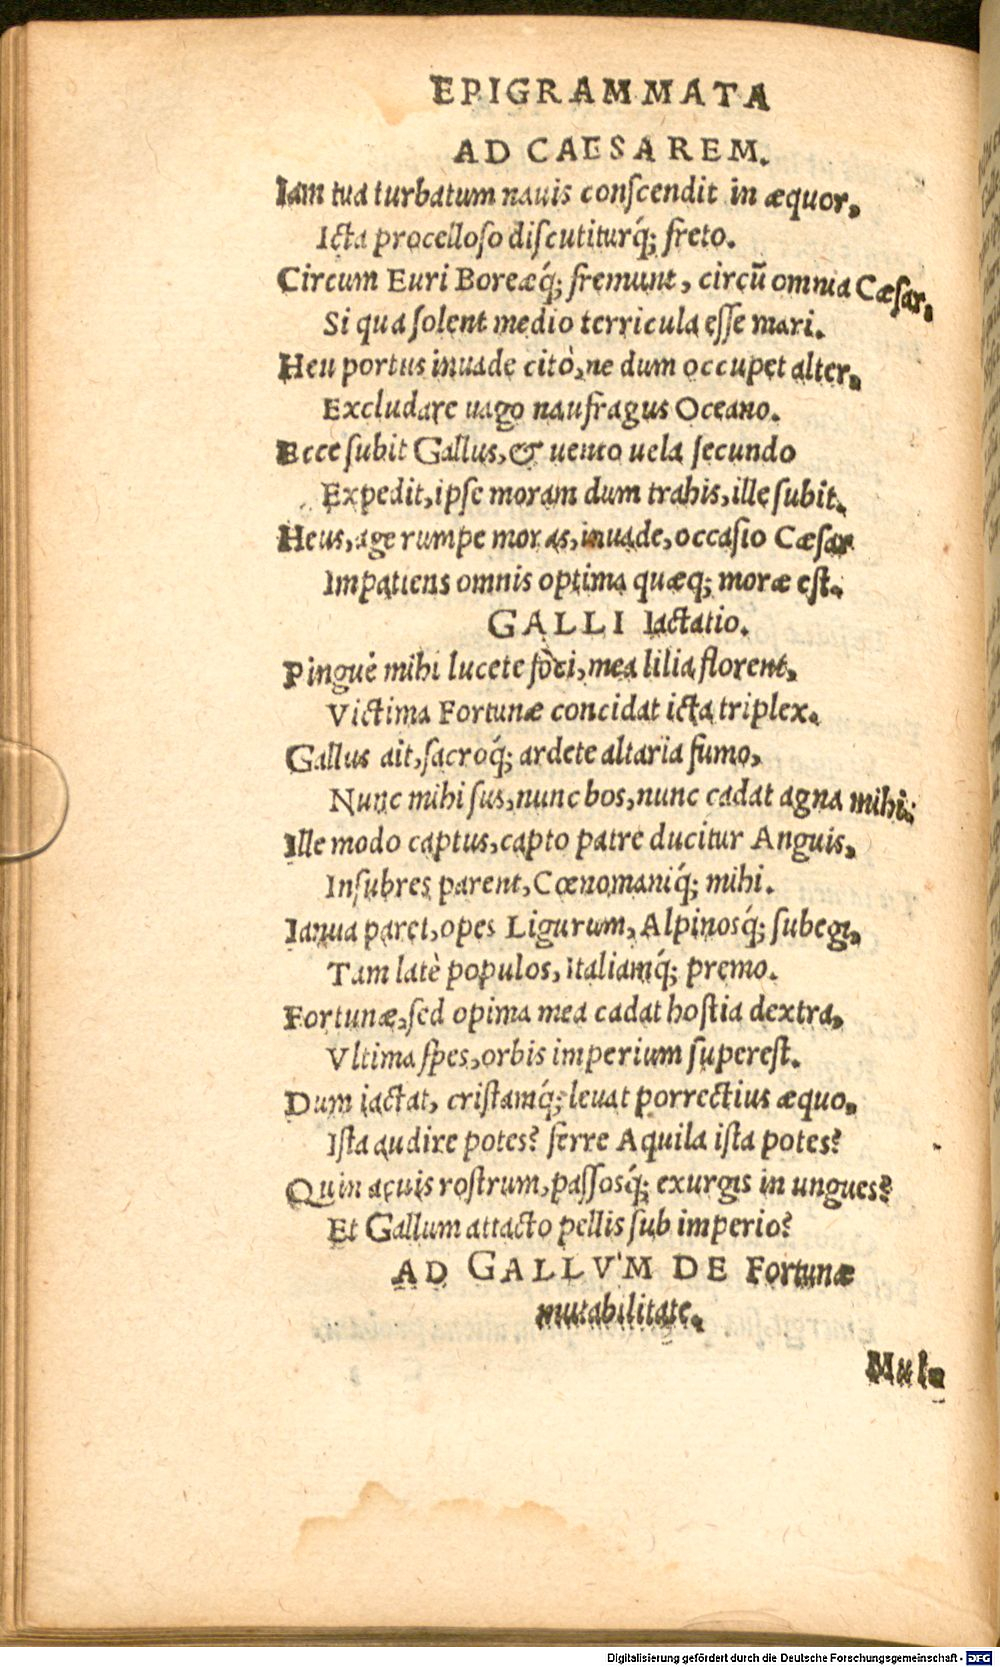 EPIGRAMMATA
AD CAESAREM.
Iam tua turbatum nauis conſcendit in æquor,
Icta procelloſo diſcutiturq́; freto.
Circum Euri Boreæq́; fremunt, circũ omnia Cæſar,
Si qua ſolent medio terricula eſſe mari.
Heu portus inuade citò, ne dum occupet alter,
Excludare uago naufragus Oceano.
Ecce ſubit Gallus, & uento uela ſecundo
Expedit, ipſe moram dum trahis, ille ſubit.
Heus, age rumpe moras, inuade, occaſio Cæſar
Impatiens omnis optima quæq; moræ eſt.
GALLI Iactatio.
Pingue mihi lucete foci, mea lilia florent,
Victima Fortunæ concidat icta triplex.
Gallus ait, ſacroq́; ardete altaria fumo,
Nunc mihi ſus, nunc bos, nunc cadat agna mihi:
Ille modo captus, capto patre ducitur Anguis,
Inſubres parent, Cœnomaniq́; mihi.
Ianua paret, opes Ligurum, Alpinosq́; ſubegi,
Tam latè populos, Italiamq́; premo.
Fortunæ, ſed opima mea cadat hoſtia dextra,
Vltima ſpes, orbis imperium ſupereſt.
Dum iactat, criſtamq́; leuat porrectius æquo,
Iſta audire potes? ferre Aquila iſta potes?
Quin acuis roſtrum, paſſosq́; exurgis in ungues?
Et Gallum attacto pellis ſub imperio?
AD GALLVM DE Fortunæ
mutabilitate.
Mul-
Digitalisierung gefördert durch die Deutsche Forschungsgemeinschaft - DFG